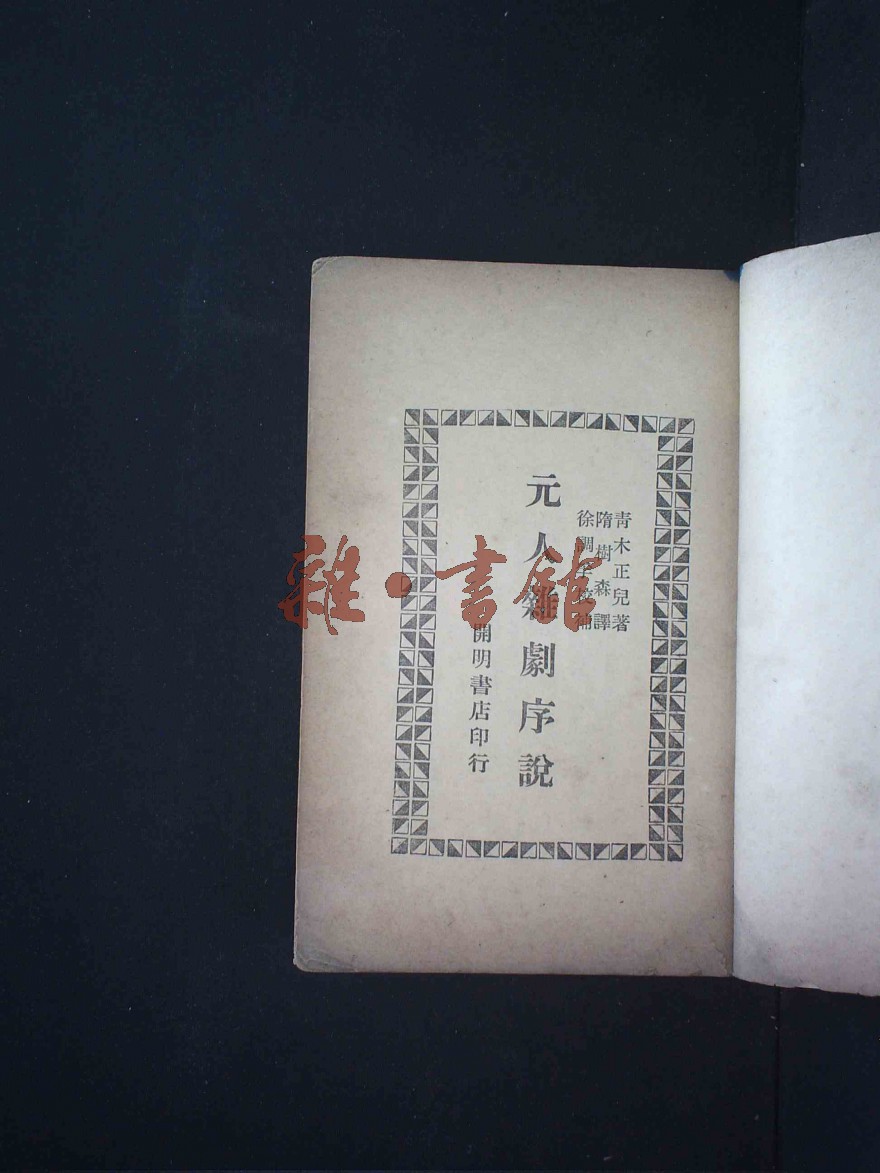 青木正兒著
隋樹森譯
徐調孚校補
元人雜劇序說
開明書店印行
雜·書館